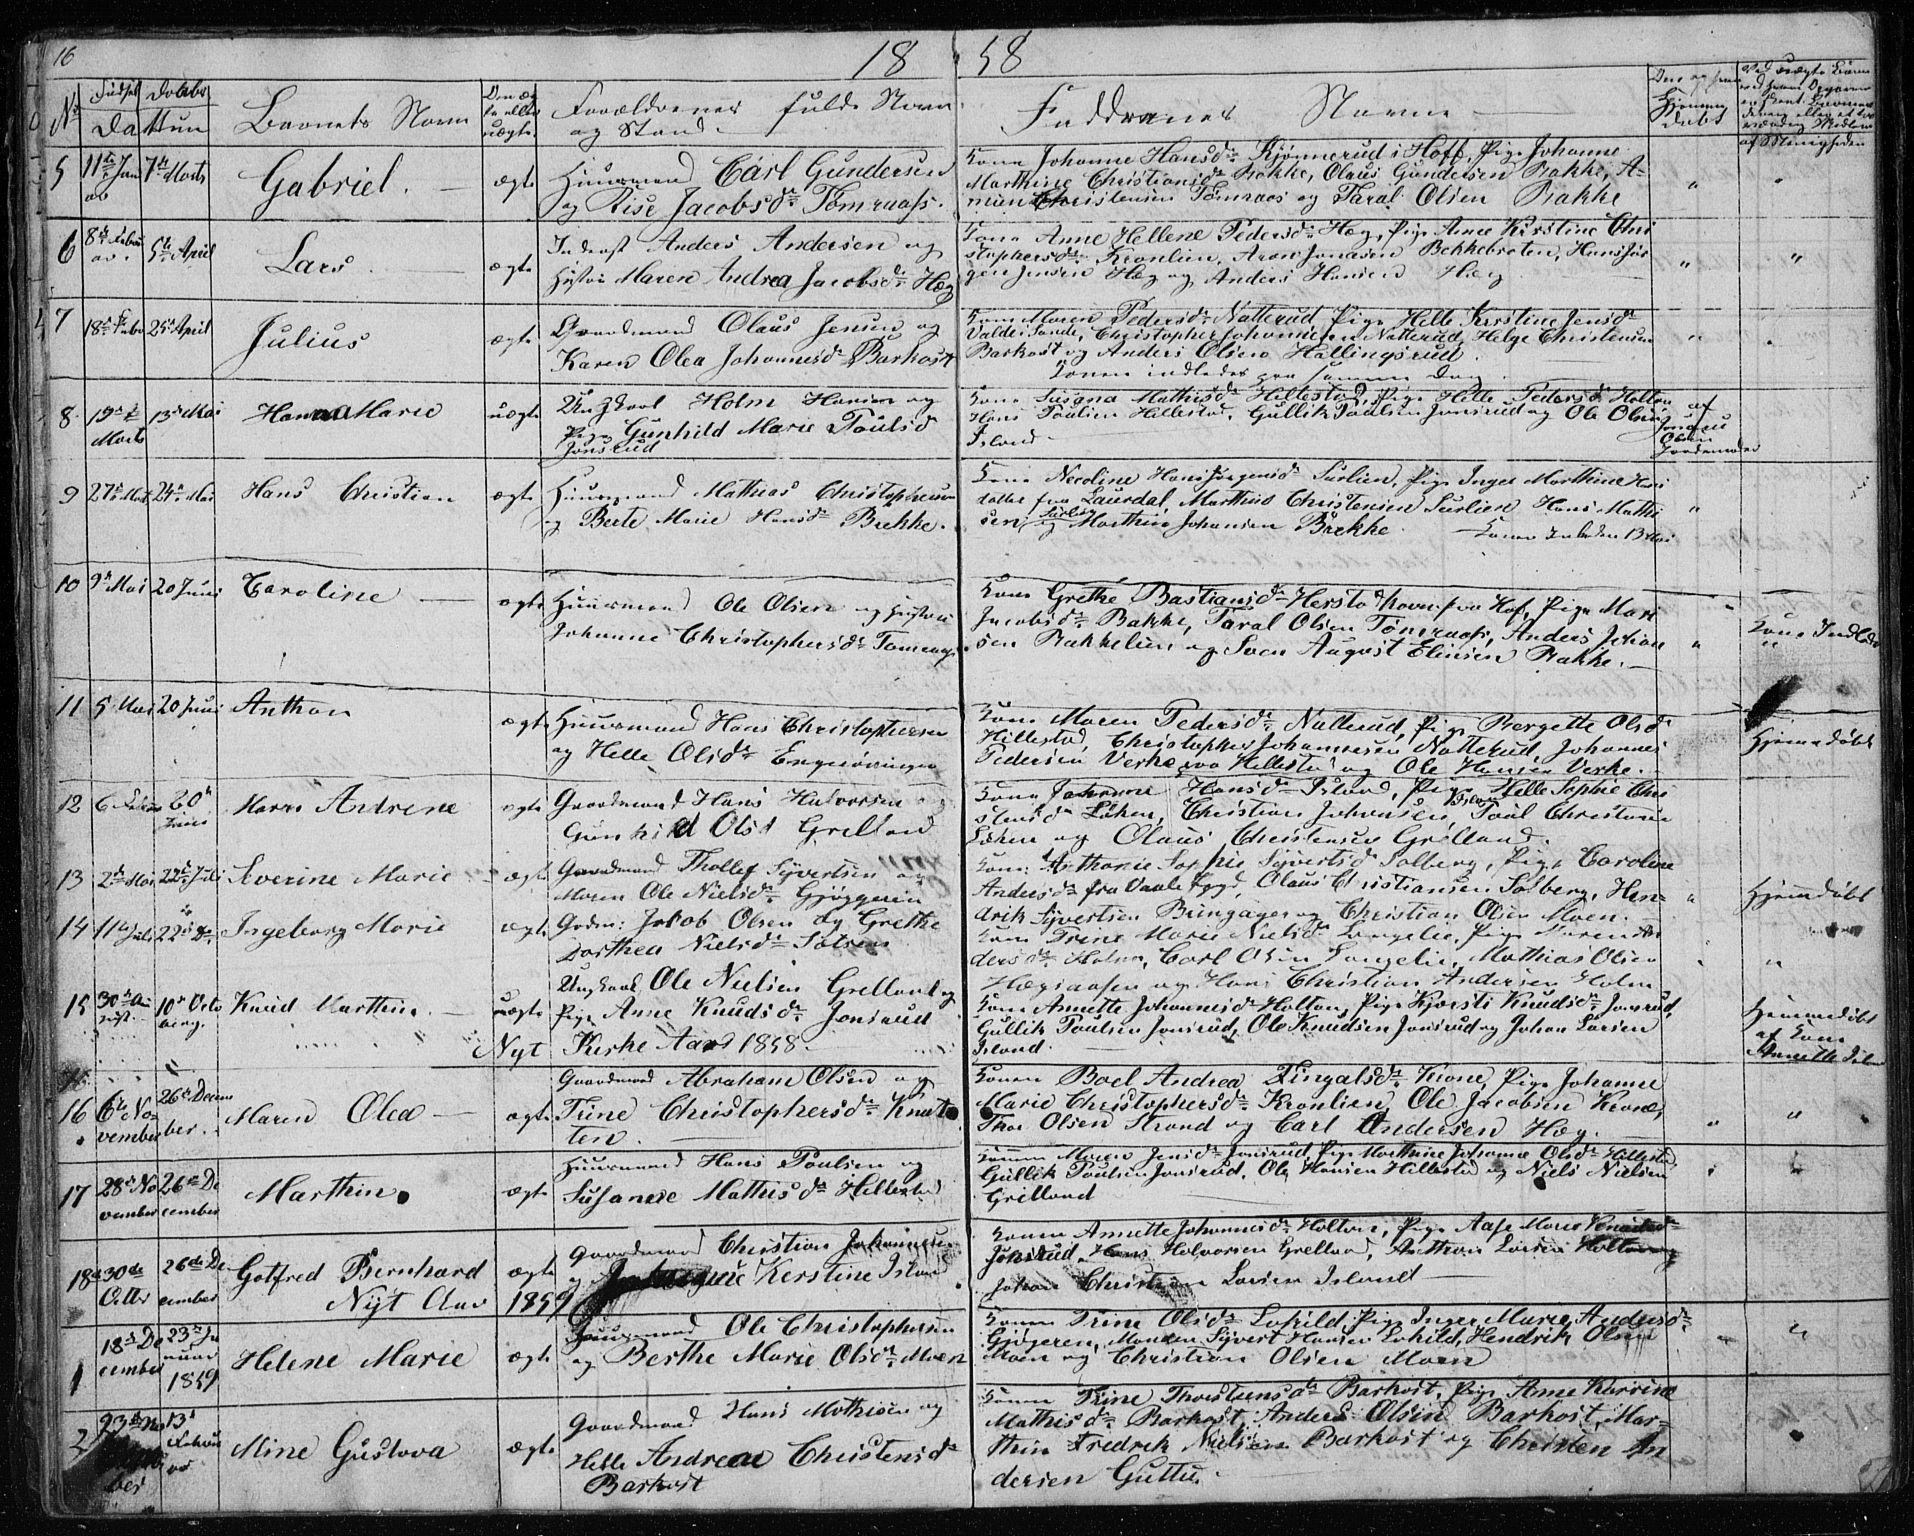 16
18 58
No Fødsel Daabs
Datum
Barnets Navn
Om ægte eller uægte
Forældrenes fulde Navn
og Stand
Faddernes Navne
Hjemme
døbt
5 11te Jan 7de Marts Gabriel. ægte Huusmand Carl Gundersen
og Lise Jacobsdr Tømraas.
Kone Johanne Hansdr Kjønnerud i Hoff, Pige Johanne
Marthine Christiansdr Bakke, Olaus Gundersen Bakke, A-
Christensen Tømraas og Taral Olsen Bakke
6 8de Febru 5te April Lars ægte Inderst Anders Andersen og
Hustru Maren Andrea Jacobsdr Hæg
Kone Anne Hellene Pedersdr Hæg, Pige Anne Kirstine Chri
stophersdr Kronlien, Aron Jonasen Bekkebroten, Hans Jør
gen Jensen Hæg og Anders Hansen Hæg
7 18de Febr 25de April Julius ægte Gaardmand Olaus Jensen og
Karen Olea Johannesdr Barkost
Kone Maren Pedersdr Natterud Pige Helle Kirstine Jensdr
Valde i Sande, Christopher Johannesen Natterud, Helge Christensen
Barkost og Anders Olsen Hallingsrud.
Konen indledet paa samme Dag.
8 19de Marts 13de Mai Hanna Marie uægte Ungkarl Holm Hansen og
Pige Gunhild Marie Poulsd
Jonsrud
Kone Susanna Mathisdr Hillestad, Pige Helle Pedersdr Holton
Hans Poulsen Hillestad, Gullik Poulsen Jonsrud og Ole Olsen
Island
af
Olsen
Jordemoder
9 27de Mart 24de Mai Hans Christian ægte Huusmand Mathias Christophersen
og Berte Marie Hansdr Brekke.
Kone Nicoline Hans Jørgensdr Surlien, Pige Inger Marthine Hans
datter fra Laurdal, Marthias Christensen Surlien Hans Mathi
sen Surlien og Marthin Johansen Brekke. Konen Inleden 13 Mai
10 9de Mai 20 Juni Caroline ægte Huusmand Ole Olsen og Hustru
Johanne Christophersdr Tømraas
Kone Grethe Bastiansdr Hersto fra Hof, Pige Mari
Jacobsdr Bakke, Taral Olsen Tømraas, Anders Johan
sen Bakkelien og Sven August Elinsen Bakke.
Kone Indledet
11 5 Mai 20 Juni Anthon ægte Huusmand Hans Christophersen
og Helle Olsdr Engnøvringen
Kone Maren Pedersdr Natterud, Pige Bergette Olsdr
Hillestad, Christopher Johannesen Natterud, Johannes
Pedersen Verke fra Hillestad og Ole Hansen Verke.
Hjemmedøbt
12 20de Juni Maren Andrene ægte Gaardmand Hans Halvorsen
Gunhild Olsd Grelland
Kone Johanne Hansdr Island, Pige Helle Sophie Chri
stensdr Løken, Christian Johansen, Poul Christian
Løken og Olaus Christensen Grelland.
13 2de Mai 22de Juli Severine Marie ægte Gaardmand Thollef Syvertsen og
Maren Ole Nielsdr Gjøggeren
Kone: Anthonie Sophie Syvertsdr Solberg, Pige Caroline
Andersdr fra Vaale bygd, Olaus Christiansen Solberg, Hen-
drik Syvertsen Bungager og Christian Olsen Moen.
Hjemmedøbt
14 11te Juli 22de Ingeborg Marie ægte Gdm: Jacob Olsen og Grethe
Dorthea Nielsdr
Kone Trine Marie Nielsdr Langelie, Pige Maren An
dersdr Holm, Carl Olsen Langelie, Mathias Olsen
Hægsaasen og Hans Christian Andersen Holm
15 30de Au 10de Octo
berg. Knud Marthin uægte Ungkarl Ole Nielsen Grelland og
Pige Anne Knudsdr Jonsrud
Kone Annette Johannesdr Holton, Pige Kjersti Knudsdr Jonsrud,
Gullik Poulsen Jonsrud, Ole Knudsen Jonsrud og Johan Larsen
Island
Hjemmedøbt
af Kone
Annette
Nyt Kirke Aar 1858
16 6te No-
vember 26de Decem
ber Maren Olea ægte Gaardmand Abraham Olsen og
Trine Christophersdr Knat
ten.
Konen Boel Andrea Zingalsdr Krone, Pige Johanne
Marie Christophersdr Kronlien, Ole Jacobsen Krone,
Thor Olsen Strand og Carl Andersen Hæg.
17 28de No
vember 26de De
cember Marthin ægte Huusmand Hans Poulsen og
Susanne Mathisdr Hillestad
Konen Maren Jensdr Jonsrud, Pige Marthine Johanne Olsdr Hillestad
Gullik Poulsen Jonsrud, Ole Hansen Hillestad og Niels Nielsen
Grelland
18 30de
Octbr 26de De
cember Gotfred Bernhard ægte Gaardmand Christian Johannesen
og Kerstine Island
Konen Annette Johannesdr Holton, Pige Aase Marie
Jonsrud, Hans Halvorsen Grelland, Anthon Larsen Holton og
Johan Christian Larsen Island
Nyt Aar 1859
1 18de De
cember 23de Ja
nuar
1859 Helene Marie ægte Huusmand Ole Christophersen
og Berthe Marie Olsdr Moen
Konen Trine Olsdr Lohild Pige Inger Marie Andersdr
Gingeren, Manden Syvert Hansen Lohild, Hendrik Olsen
Moen og Christian Olsen Moen
2 23de No
ber 13de
Febru
ar Mine Gustava ægte Gaardmand Hans Mathisen og
Helle Andrea Christensdr
Barkost
Konen Trine Thorstensdr Barkost, Pige Anne Karrine
Mathisdr Barkost, Anders Olsen Barkost, Mar-
thin Fredrik Nielsen Barkost og Christen An
dersen Guttu.